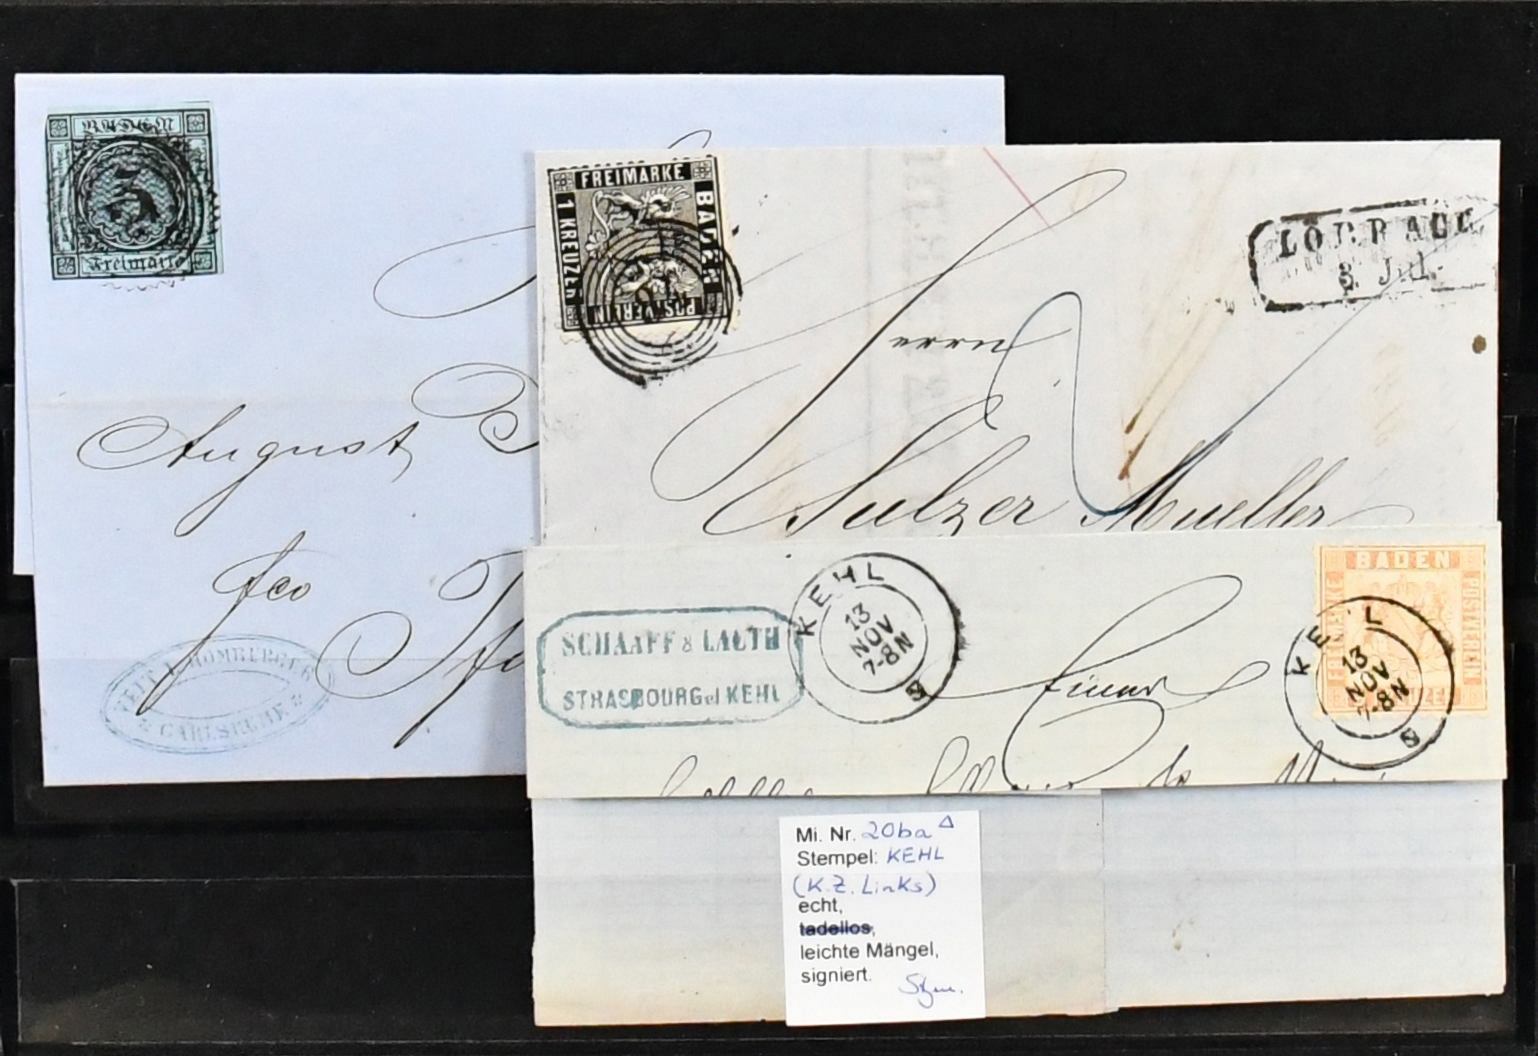 BADEN
3
Freimarke
August
fco
VEIT L. HOMBURGER
CARLSRUHE
FREIMARKE
BADEN
1 KREUZER
POSTVEREIN
LÖRRACH
8. Jul.
Herrn
Sulzer Mueller
SCHAAFF & LAUTH
STRASBOURG et KEHL
KEHL
13
NOV
7-8N
BADEN
FREIMARKE
POSTVEREIN
KEHL
13
NOV
7-8N
Mi. Nr. 20ba △
Stempel: KEHL
(K.Z. Links)
echt,
tadellos,
leichte Mängel,
signiert.